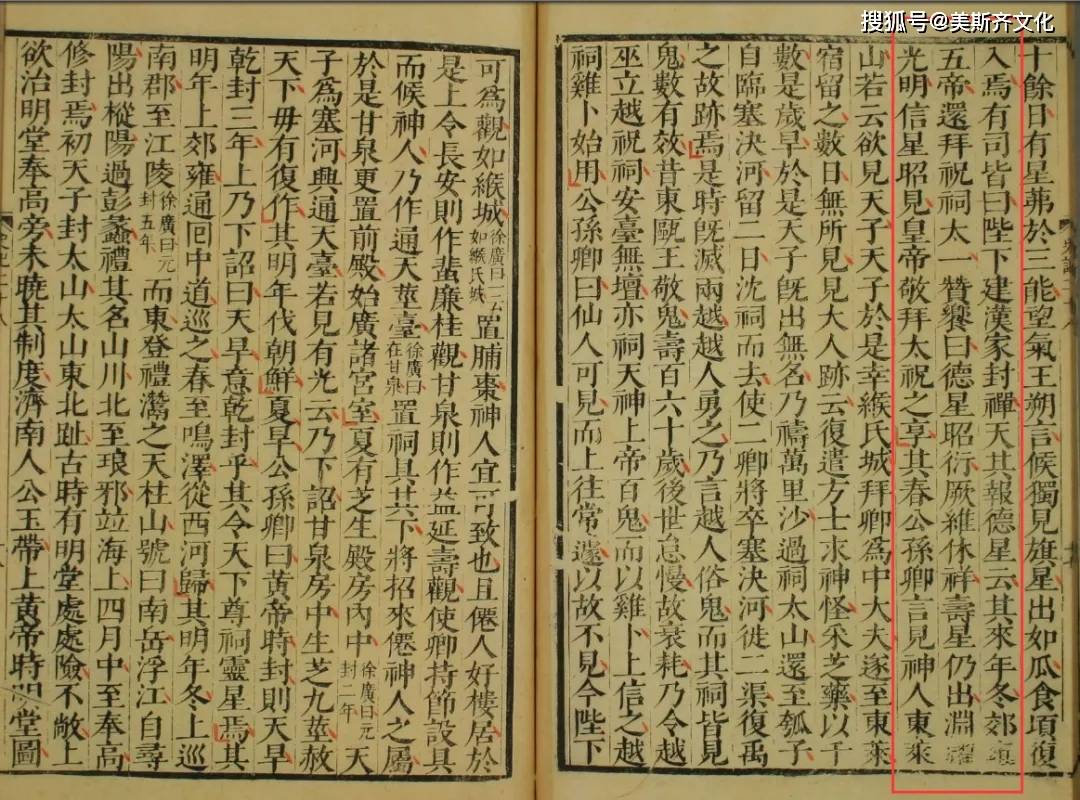 搜狐号@美斯齐文化
十餘日有星茀於三能望氣王朔言候獨見旗星出如瓜食頃復
入焉有司皆曰陛下建漢家封禪天其報德星云其來年冬郊雍
五帝還拜祝祠太一贊饗曰德星昭衍厥維休祥壽星仍出淵耀
光明信星昭見皇帝敬拜太祝之享其春公孫卿言見神人東萊
山若云欲見天子天子於是幸緱氏城拜卿爲中大夫遂至東萊
宿留之數日無所見見大人跡云復遣方士求神怪采芝藥以千
數是歲旱於是天子旣出無名乃禱萬里沙過祠太山還至瓠子
自臨塞決河留二日沈祠而去使二卿將卒塞決河徙二渠復禹
之故跡焉是時旣滅兩越越人勇之乃言越人俗鬼而其祠皆見
鬼數有效昔東甌王敬鬼壽百六十歲後世怠慢故衰耗乃令越
巫立越祝祠安臺無壇亦祠天神上帝百鬼而以雞卜上信之越
祠雞卜始用公孫卿曰仙人可見而上往常遽以故不見今陛下
可爲觀如緱城徐廣曰一云如緱氏城置脯棗神人宜可致也且僊人好樓居於
是上令長安則作蜚廉桂觀甘泉則作益延壽觀使卿持節設具
而候神人乃作通天莖臺徐廣曰在甘泉置祠具其下將招來僊神人之屬
於是甘泉更置前殿始廣諸宮室夏有芝生殿房內中徐廣曰元封二年天
子爲塞河興通天臺若見有光云乃下詔甘泉房中生芝九莖赦
天下毋有復作其明年伐朝鮮夏旱公孫卿曰黃帝時封則天旱
乾封三年上乃下詔曰天旱意乾封乎其令天下尊祠靈星焉其
明年上郊雍通囘中道巡之春至鳴澤從西河歸其明年冬上巡
南郡至江陵徐廣曰元封五年而東登禮灊之天柱山號曰南岳浮江自尋
陽出樅陽過彭蠡禮其名山川北至琅邪竝海上四月中至奉高
修封焉初天子封太山太山東北趾古時有明堂處處險不敞上
欲治明堂奉高旁未曉其制度濟南人公玉帶上黃帝時明堂圖